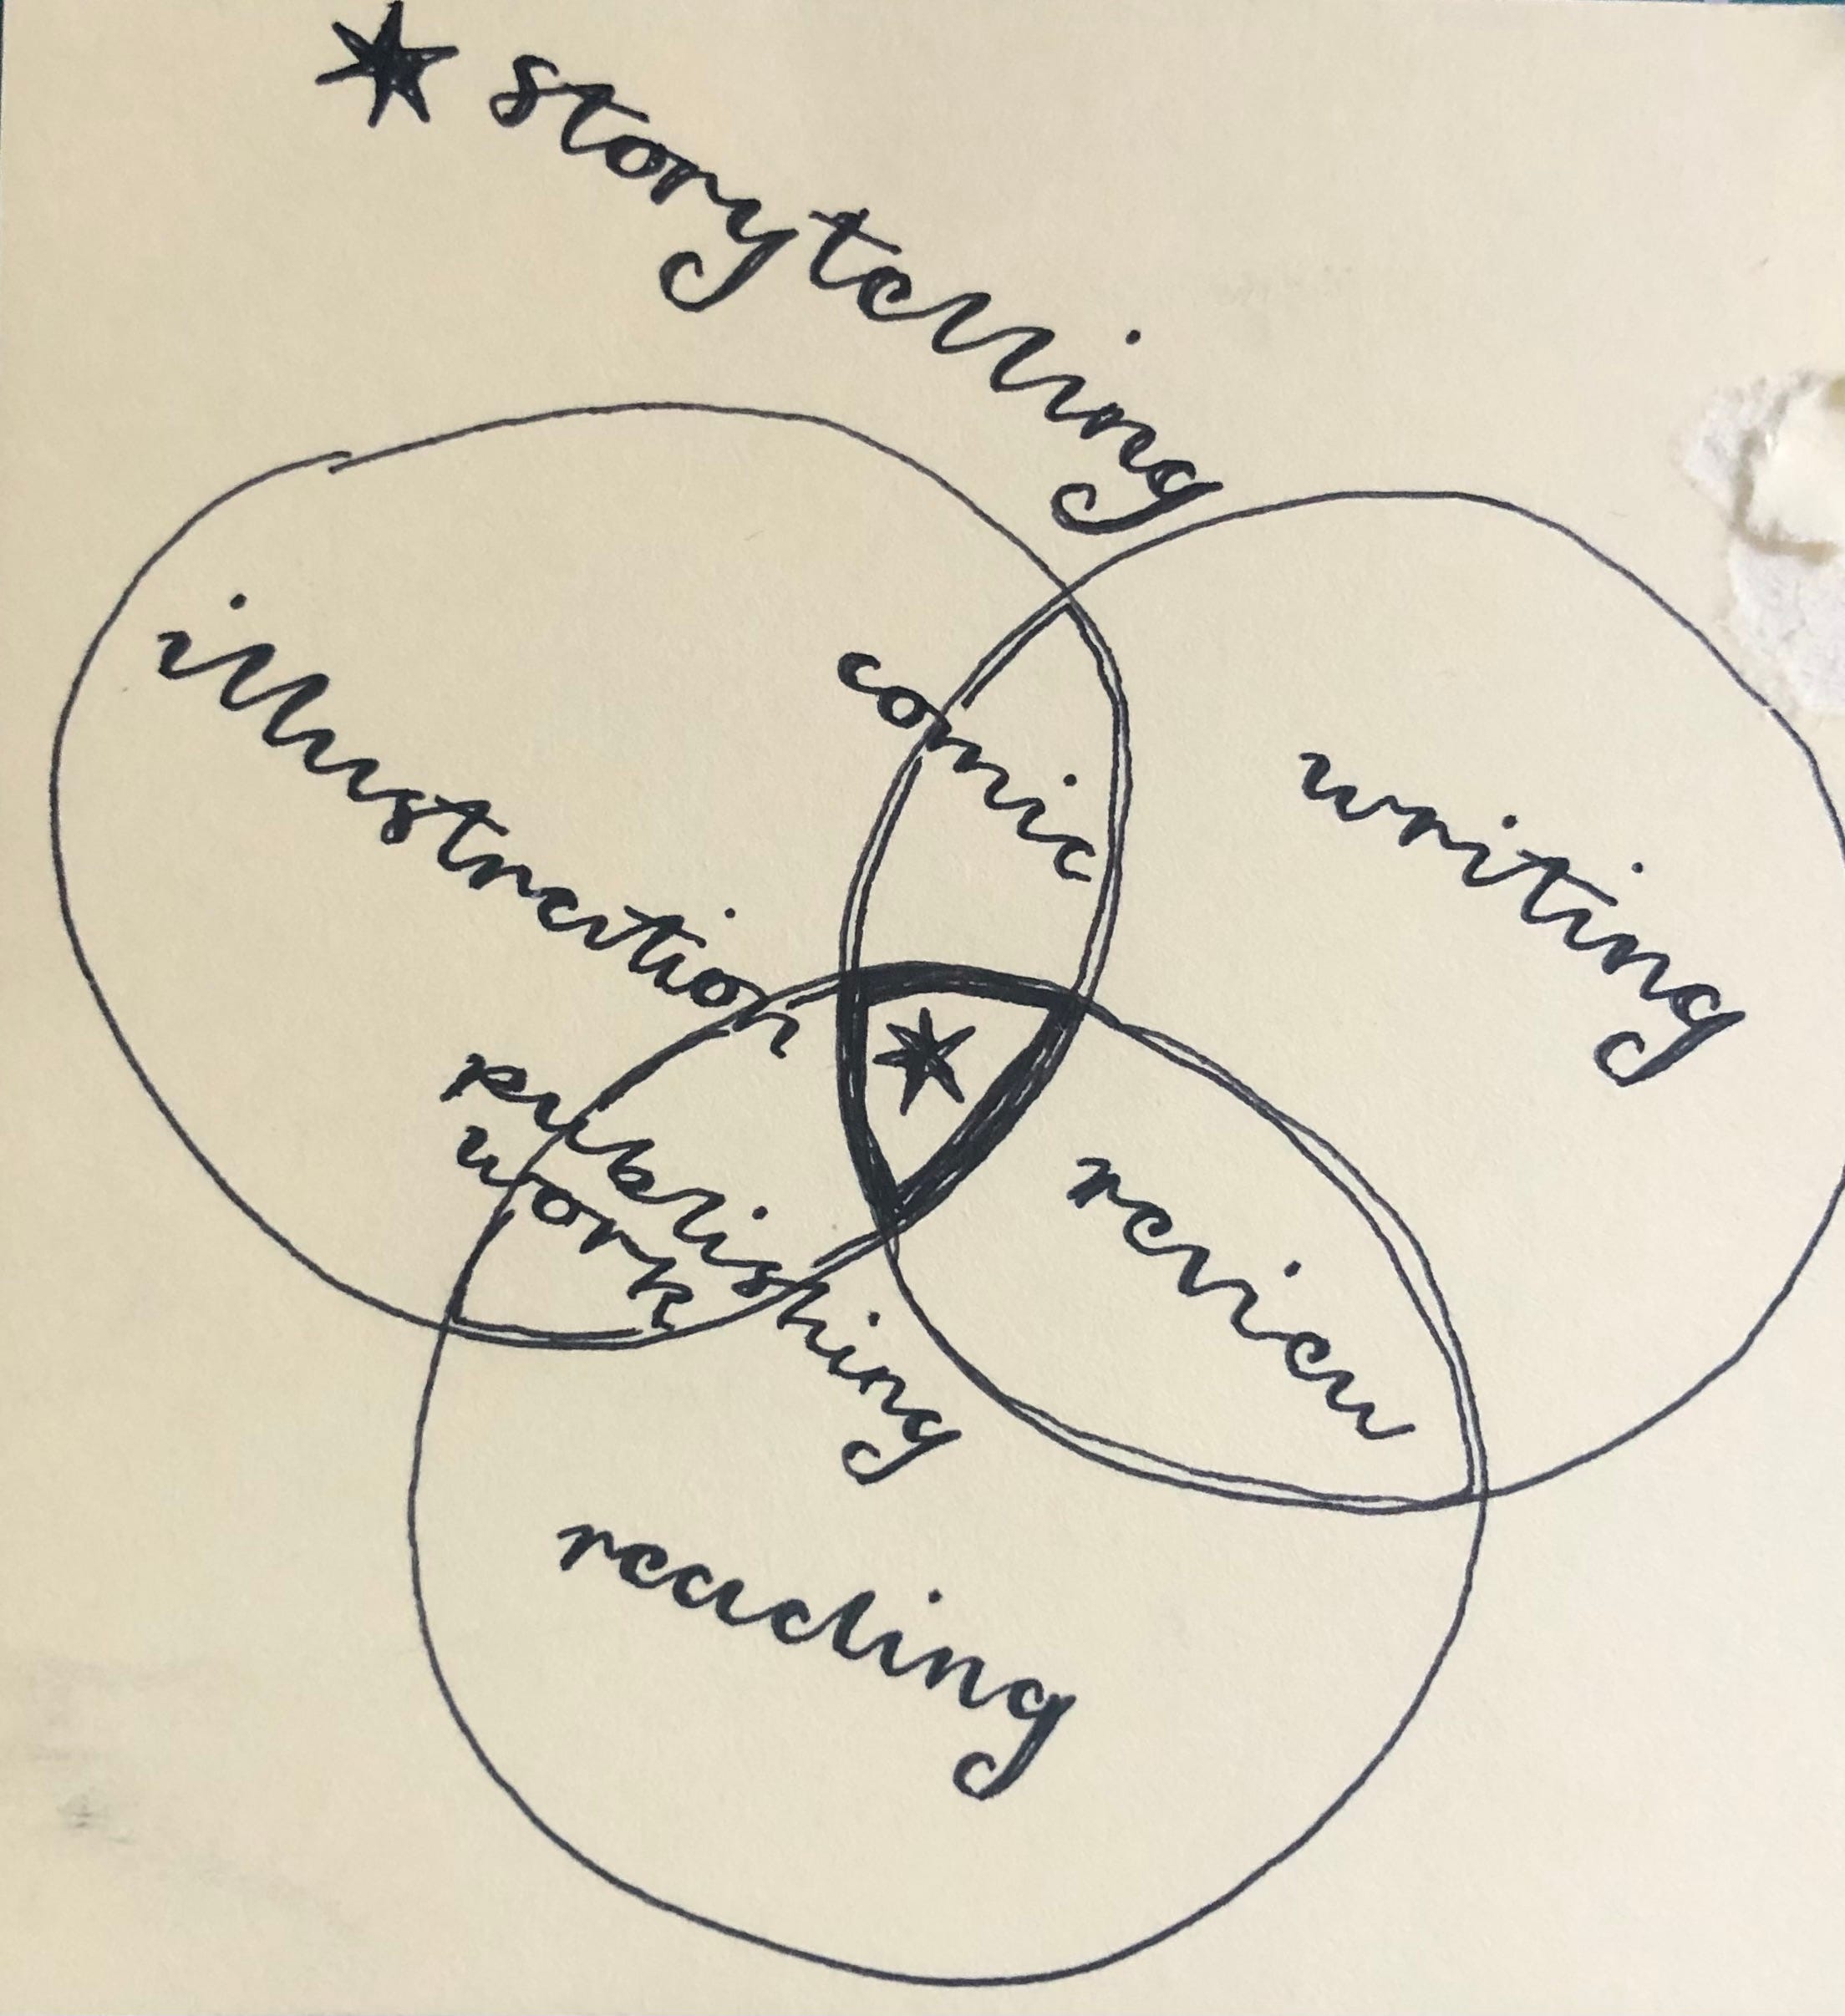 * storytelling
illustration
comic
writing
*
publishing
work
review
reading